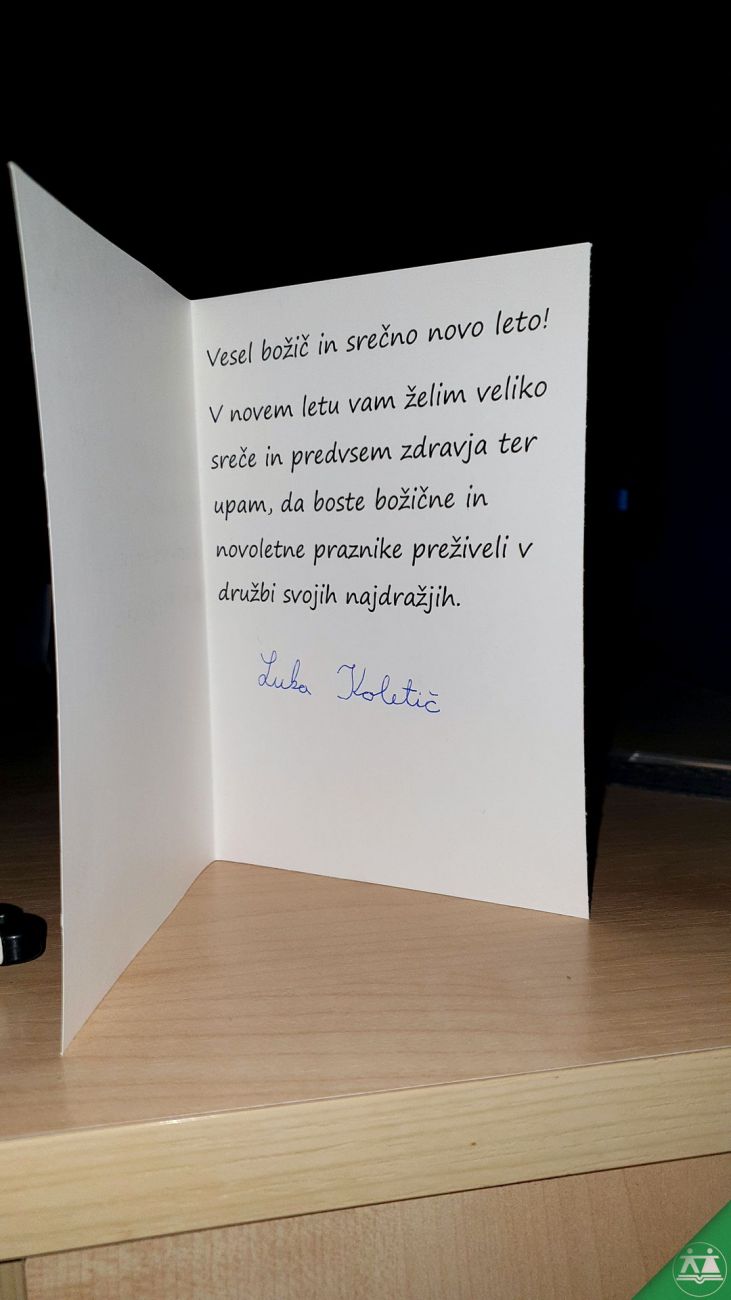 Vesel božič in srečno novo leto!
V novem letu vam želim veliko
sreče in predvsem zdravja ter
upam, da boste božične in
novoletne praznike preživeli v
družbi svojih najdražjih.
Luka Koletič